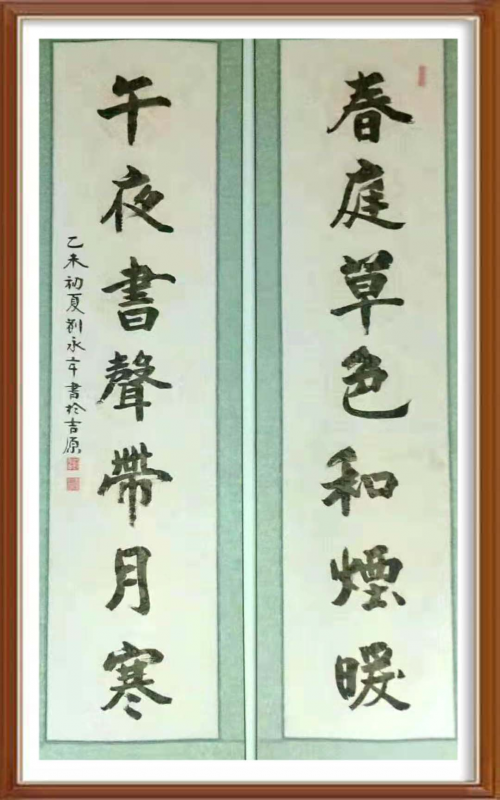 春庭草色和煙暖
午夜書聲帶月寒
乙未初夏劉永辛書於吉原